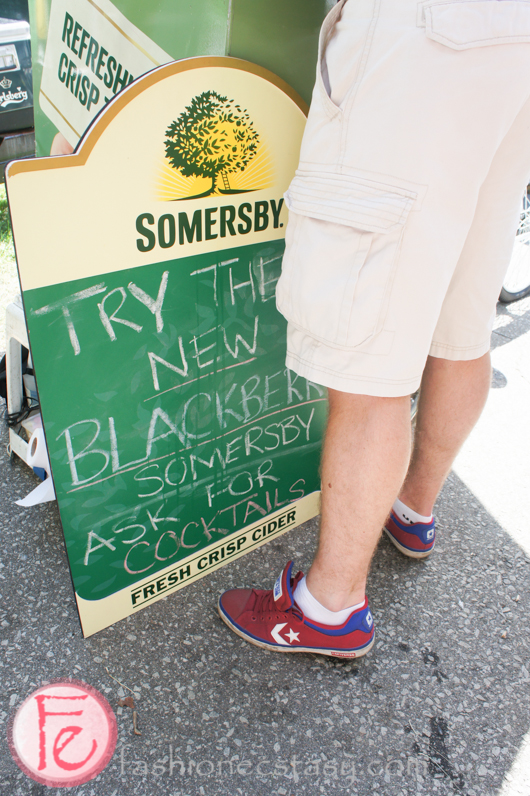 REFRESHI
CRISP
Carlsberg
SOMERSBY.
TRY THE
NEW
BLACKBERR
SOMERSBY
ASK FOR
COCKTAILS
FRESH CRISP CIDER
Fe
fashionecstasy.com